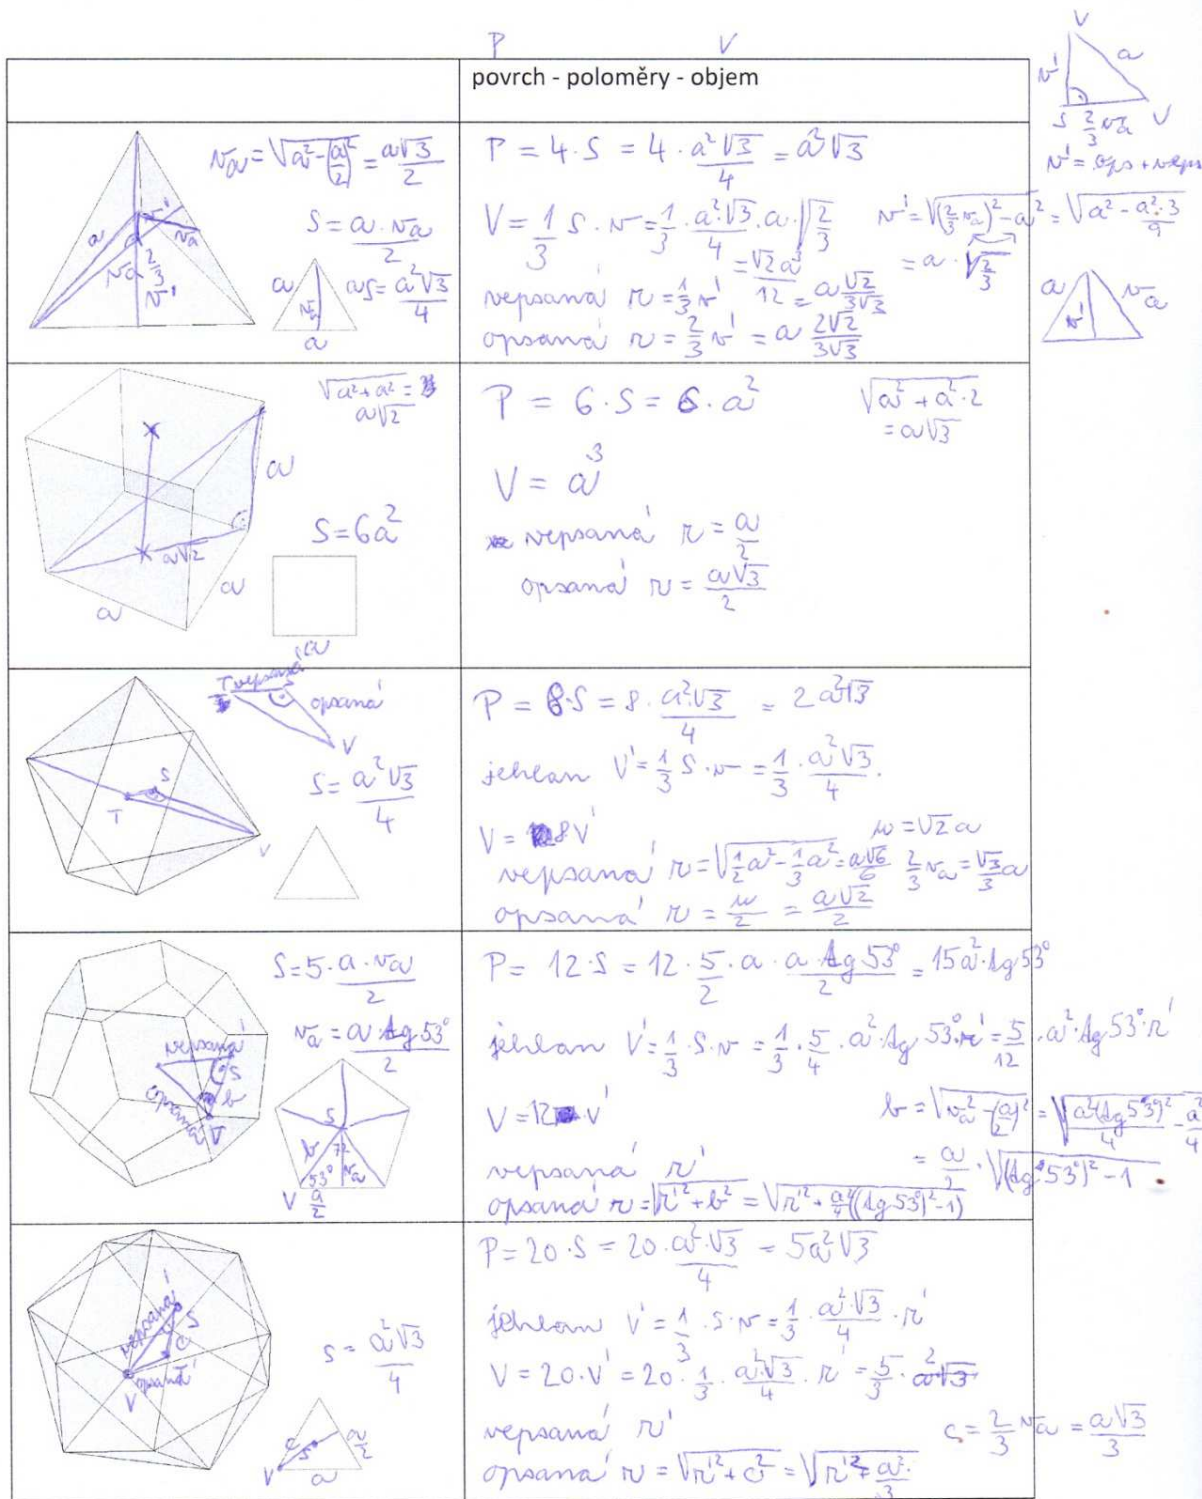 P V
povrch - poloměry - objem
V
v' a
S 2/3 v_a V
v' = ops + veps
v_a = √(a² - (a/2)²) = a√3/2
S = a · v_a / 2
S = a²√3/4
a v_a 2/3 v' v_a
a v_a a
P = 4 · S = 4 · a²√3/4 = a²√3
V = 1/3 S · v = 1/3 · a²·√3/4 · a · √(2/3)
= √2 a³/12
v' = √((2/3 v_a)² - a²) = √(a² - a²·3/9)
= a · √(2/3)
vepsaná r = 1/3 v' = a √2/(3√3)
opsaná r = 2/3 v' = a 2√2/(3√3)
a v' v_a
√(a² + a²) =
a√2
a
S = 6a²
a√2
a a
a
P = 6 · S = 6 · a²
√(a² + a² · 2)
= a√3
V = a³
vepsaná r = a/2
opsaná r = a√3/2
T vepsaná S
opsaná
V
S = a²√3/4
S
T V
P = 8·S = 8 · a²·√3/4 = 2a²√3
jehlan V' = 1/3 S · v = 1/3 · a²√3/4 ·
V = 8V'
u = √2 a
vepsaná r = √(1/2 a² - 1/3 a²) = a√6/6
2/3 v_a = √3/3 a
opsaná r = u/2 = a√2/2
S = 5 · a · v_a / 2
v_a = a · tg 53°/2
vepsaná S
opsaná b
S
b 72 v_a
53°
V a/2
P = 12 · S = 12 · 5/2 · a · a · tg 53°/2 = 15a² · tg 53°
jehlan V' = 1/3 · S · v = 1/3 · 5/4 · a² · tg 53° · r' = 5/12 · a² · tg 53° · r'
V = 12 · V'
b = √(v_a² - (a/2)²) = √(a²(tg 53°)²/4 - a²/4)
= a/2 · √((tg 53°)² - 1)
vepsaná r'
opsaná r = √(r'² + b²) = √(r'² + a²/4((tg 53°)² - 1))
vepsaná S
c
opsaná
V
S = a²√3/4
c S a/2
V a
P = 20 · S = 20 · a²·√3/4 = 5a²√3
jehlan V' = 1/3 · S · v = 1/3 · a²·√3/4 · r'
V = 20 · V' = 20 · 1/3 · a²√3/4 · r' = 5/3 · a²√3
vepsaná r'
c = 2/3 v_a = a√3/3
opsaná r = √(r'² + c²) = √(r'² + a²/3)